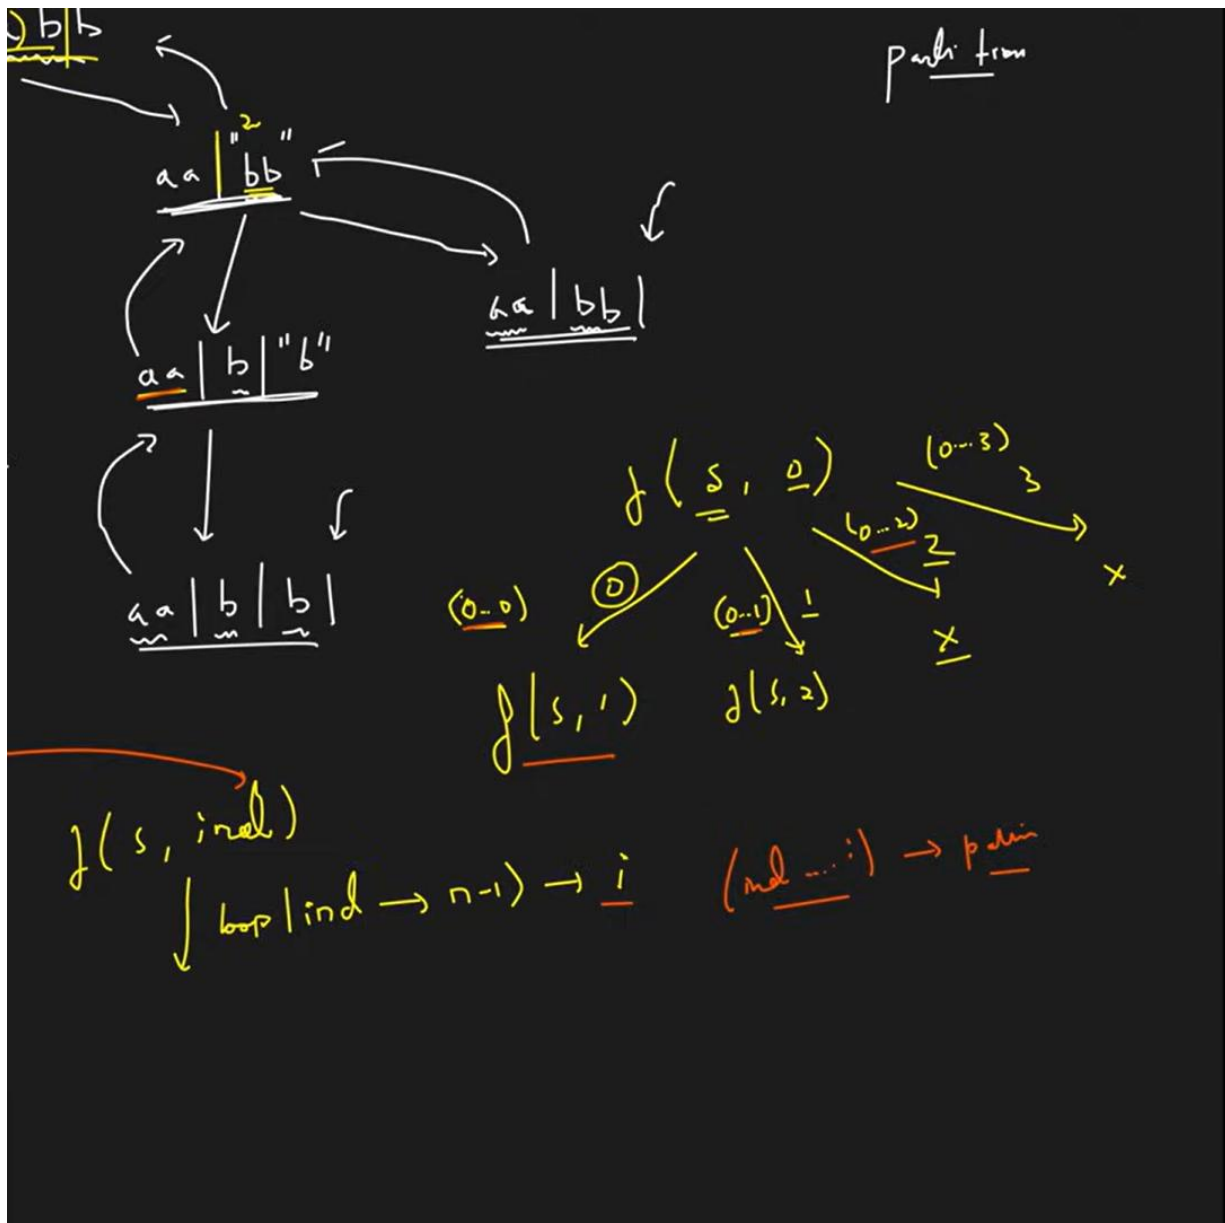 ) b|b
partition
2
aa | "bb"
aa | bb |
aa | b | "b"
f(s, 0)
(0...3)
3
(0...2)
2
x
0
(0..0)
(0..1)
1
x
aa | b | b |
f(s, 1)
f(s, 2)
f(s, ind)
loop(ind → n-1) → i
(ind ... i) → palin